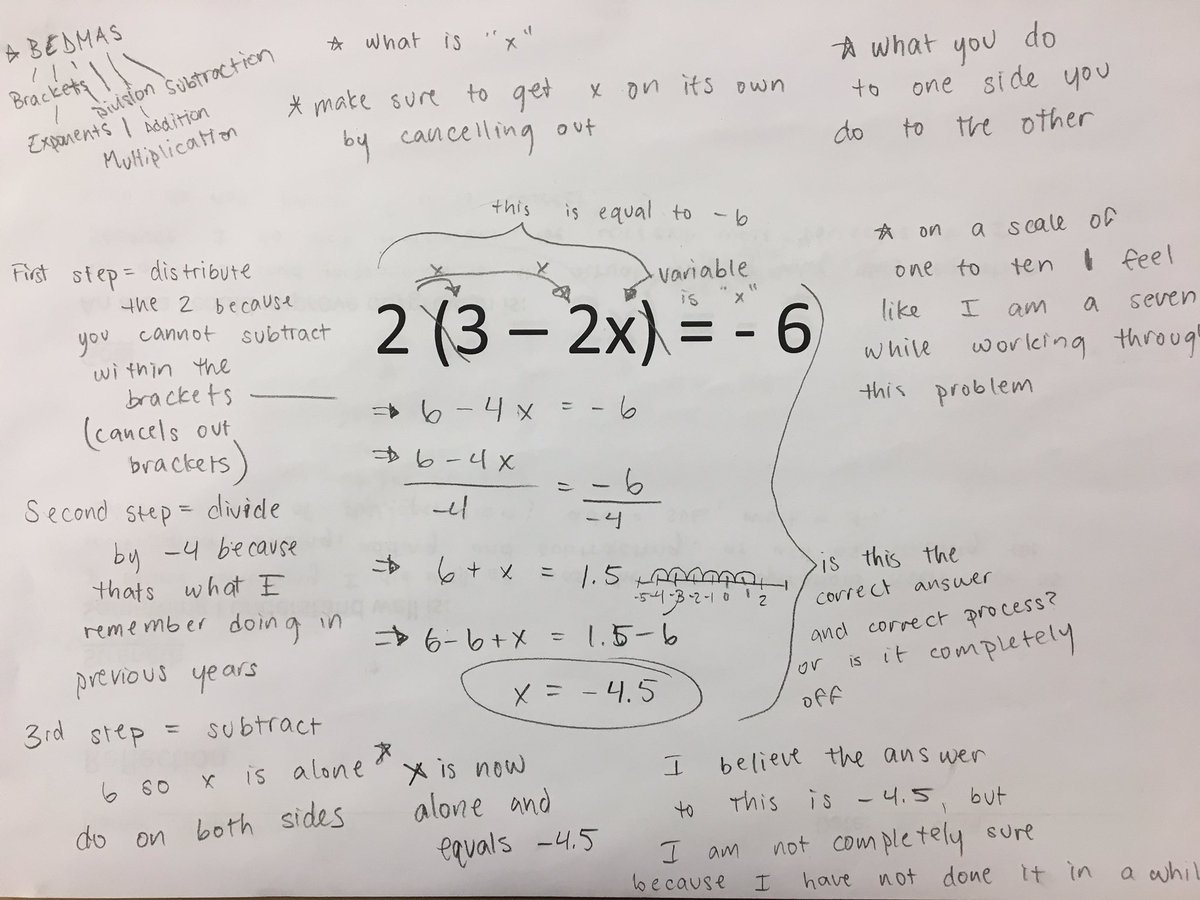 ☆ BEDMAS
Brackets
Exponents
Division
Multiplication
Addition
Subtraction
☆ what is "x"
* make sure to get x on its own
by cancelling out
☆ what you do
to one side you
do to the other
this is equal to -6
variable
is "x"
2 (3 – 2x) = - 6
⇒ 6 - 4x = -6
⇒ 6 - 4x = -6
-4 -4
⇒ 6 + x = 1.5
-5 -4 -3 -2 -1 0 1 2
⇒ 6-6+x = 1.5-6
x = -4.5
First step = distribute
the 2 because
you cannot subtract
within the
brackets
(cancels out
brackets)
Second step = divide
by -4 because
thats what I
remember doing in
previous years
3rd step = subtract
6 so x is alone
do on both sides
* x is now
alone and
equals -4.5
☆ on a scale of
one to ten I feel
like I am a seven
while working throug
this problem
is this the
correct answer
and correct process?
or is it completely
off
I believe the answer
to this is -4.5, but
I am not completely sure
because I have not done it in a whil